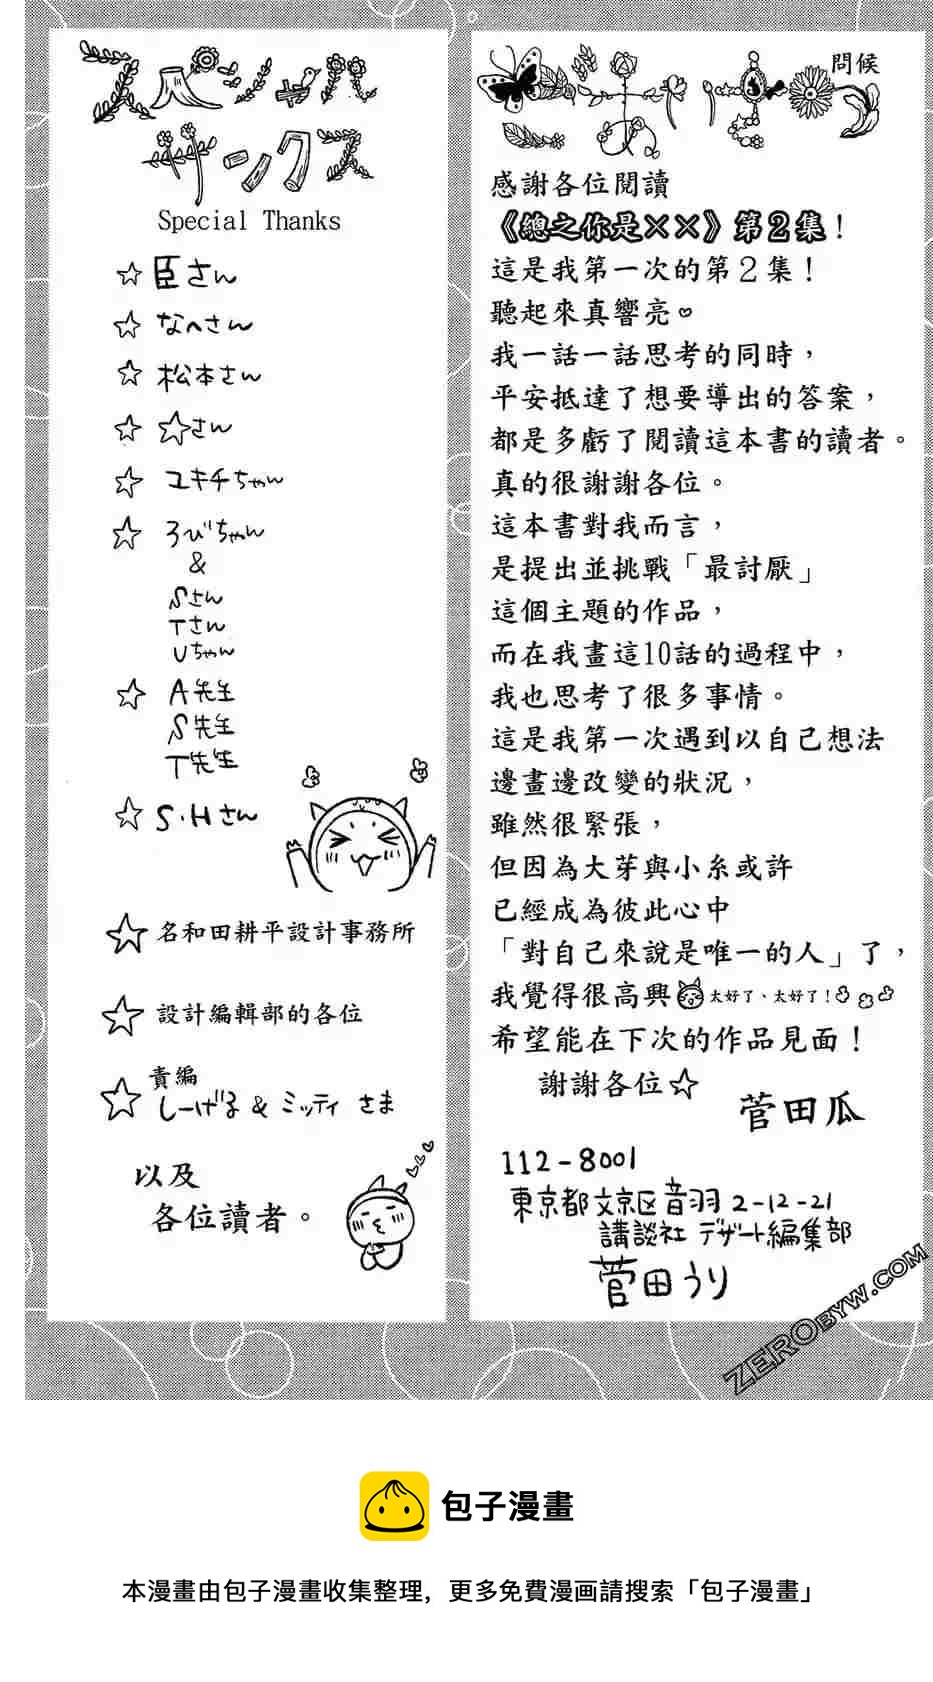 スペシャル
サンクス
Special Thanks
☆ 臣さん
☆ なへさん
☆ 松本さん
☆ ☆さん
☆ ユキチちゃん
☆ ろびちゃん
&
Sさん
Tさん
Uちゃん
☆ A先生
S先生
T先生
☆ S・Hさん
☆ 名和田耕平設計事務所
☆ 設計編輯部的各位
責編
☆ しーげる & ミッティ さま
以及
各位讀者。
問候
感謝各位閱讀
《總之你是××》第2集!
這是我第一次的第2集!
聽起來真響亮♡
我一話一話思考的同時,
平安抵達了想要導出的答案,
都是多虧了閱讀這本書的讀者。
真的很謝謝各位。
這本書對我而言,
是提出並挑戰「最討厭」
這個主題的作品,
而在我畫這10話的過程中,
我也思考了很多事情。
這是我第一次遇到以自己想法
邊畫邊改變的狀況,
雖然很緊張,
但因為大芽與小糸或許
已經成為彼此心中
「對自己來說是唯一的人」了,
我覺得很高興 太好了、太好了!
希望能在下次的作品見面!
謝謝各位☆
菅田瓜
112-8001
東京都文京区音羽2-12-21
講談社 デザート編集部
菅田うり
ZEROBYW.COM
包子漫畫
本漫畫由包子漫畫收集整理,更多免費漫画請搜索「包子漫畫」